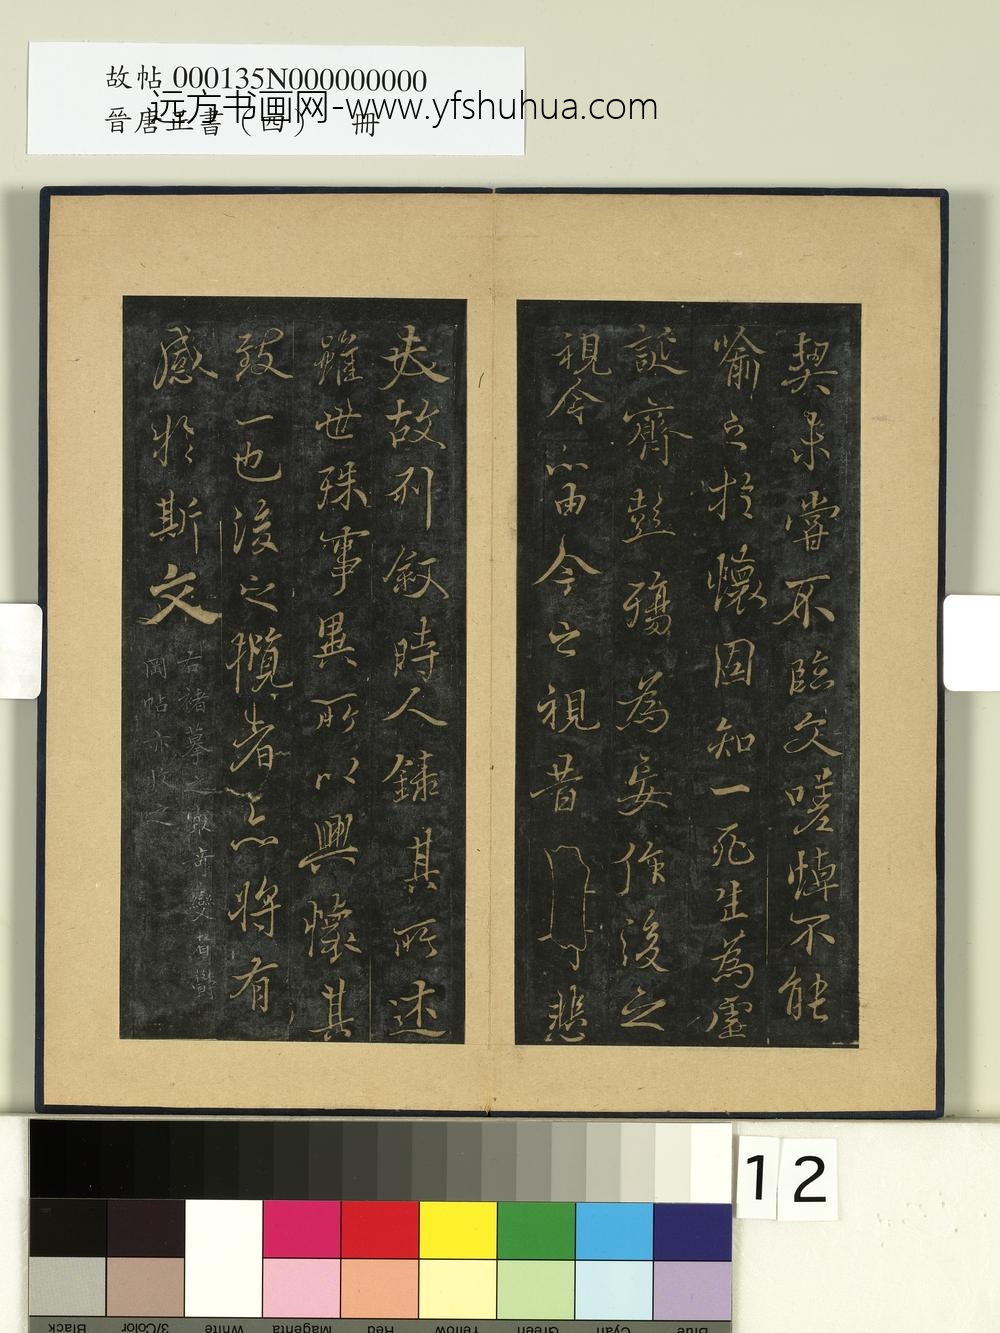 故帖 000135N000000000
晉唐正書（四） 冊
远方书画网-www.yfshuhua.com
契未嘗不臨文嗟悼不能
喻之於懷固知一死生為虛
誕齊彭殤為妄作後之
視今亦由今之視昔
悲
夫故列敘時人錄其所述
雖世殊事異所以興懷其
致一也後之攬者亦將有
感於斯文
右褚摹之
岡帖亦收之
12
Black
3/Color
White
Magenta
Red
Yellow
Green
Cyan
Blue